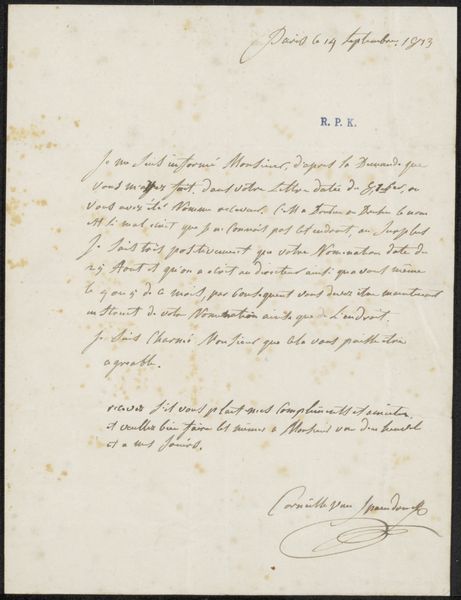 Paris le 14 Septembre 1813
R. P. K.
Je me suis informé Monsieur, d'après la Demande que
vous m'avez fait, dans votre Lettre datée du
vous avez été Nommé receveur. C'est a
est si mal écrit que je ne connois pas cet endroit, au Surplus
Je Sais très positivement que votre Nomination date du
25 Aout et qu'on a écrit au directeur ainsi que a vous meme
le 4 ou 5 de ce mois, par Consequent vous devez etre maintenant
instruit de votre Nomination ainsi que de L'endroit.
Je Suis Charmé Monsieur que cela vous etre
agreable.
recevez s'il vous plait mes Compliments et amities
et veuillez bien faire les memes a Monsieur van den
et a
Corneille van Spaendonck